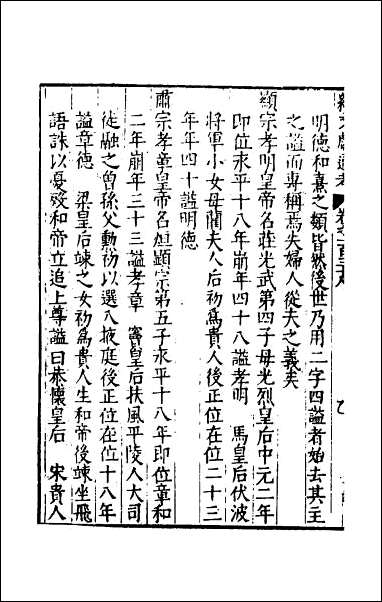 明德和熹之類皆然後世乃用二字四謚者始去其主
之謚而專稱焉失婦人從夫之義矣
顯宗孝明皇帝名莊光武第四子母光烈皇后中元二年
即位永平十八年崩年四十八謚孝明　馬皇后伏波
將軍小女母藺夫人后初爲貴人後正位在位二十三
年年四十謚明德
肅宗孝章皇帝名炟顯宗第五子永平十八年即位章和
二年崩年三十三謚孝章　竇皇后扶風平陵人大司
徒融之曾孫父勳初以選入掖庭後正位在位十八年
謚章德　梁皇后竦之女初爲貴人生和帝後竦坐飛
語誅以憂歿和帝立追上尊謚曰恭懷皇后　宋貴人